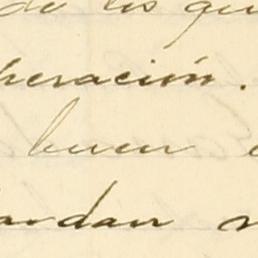 de los qu
peración.
buen e
dardan n